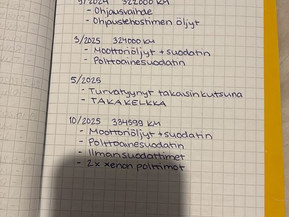 /2024 322000 KM
- Ohjausvaihde
- Ohjaustehostimen öljyt
3/2025 324000 KM
- Moottoriöljyt + suodatin
- Polttoainesuodatin
5/2025
- Turvatyynyt takaisinkutsuna
- TAKAKELKKA
10/2025 334599 KM
- Moottoriöljyt + suodatin
- Polttoainesuodatin
- Ilmansuodattimet
- 2x xenon polttimot